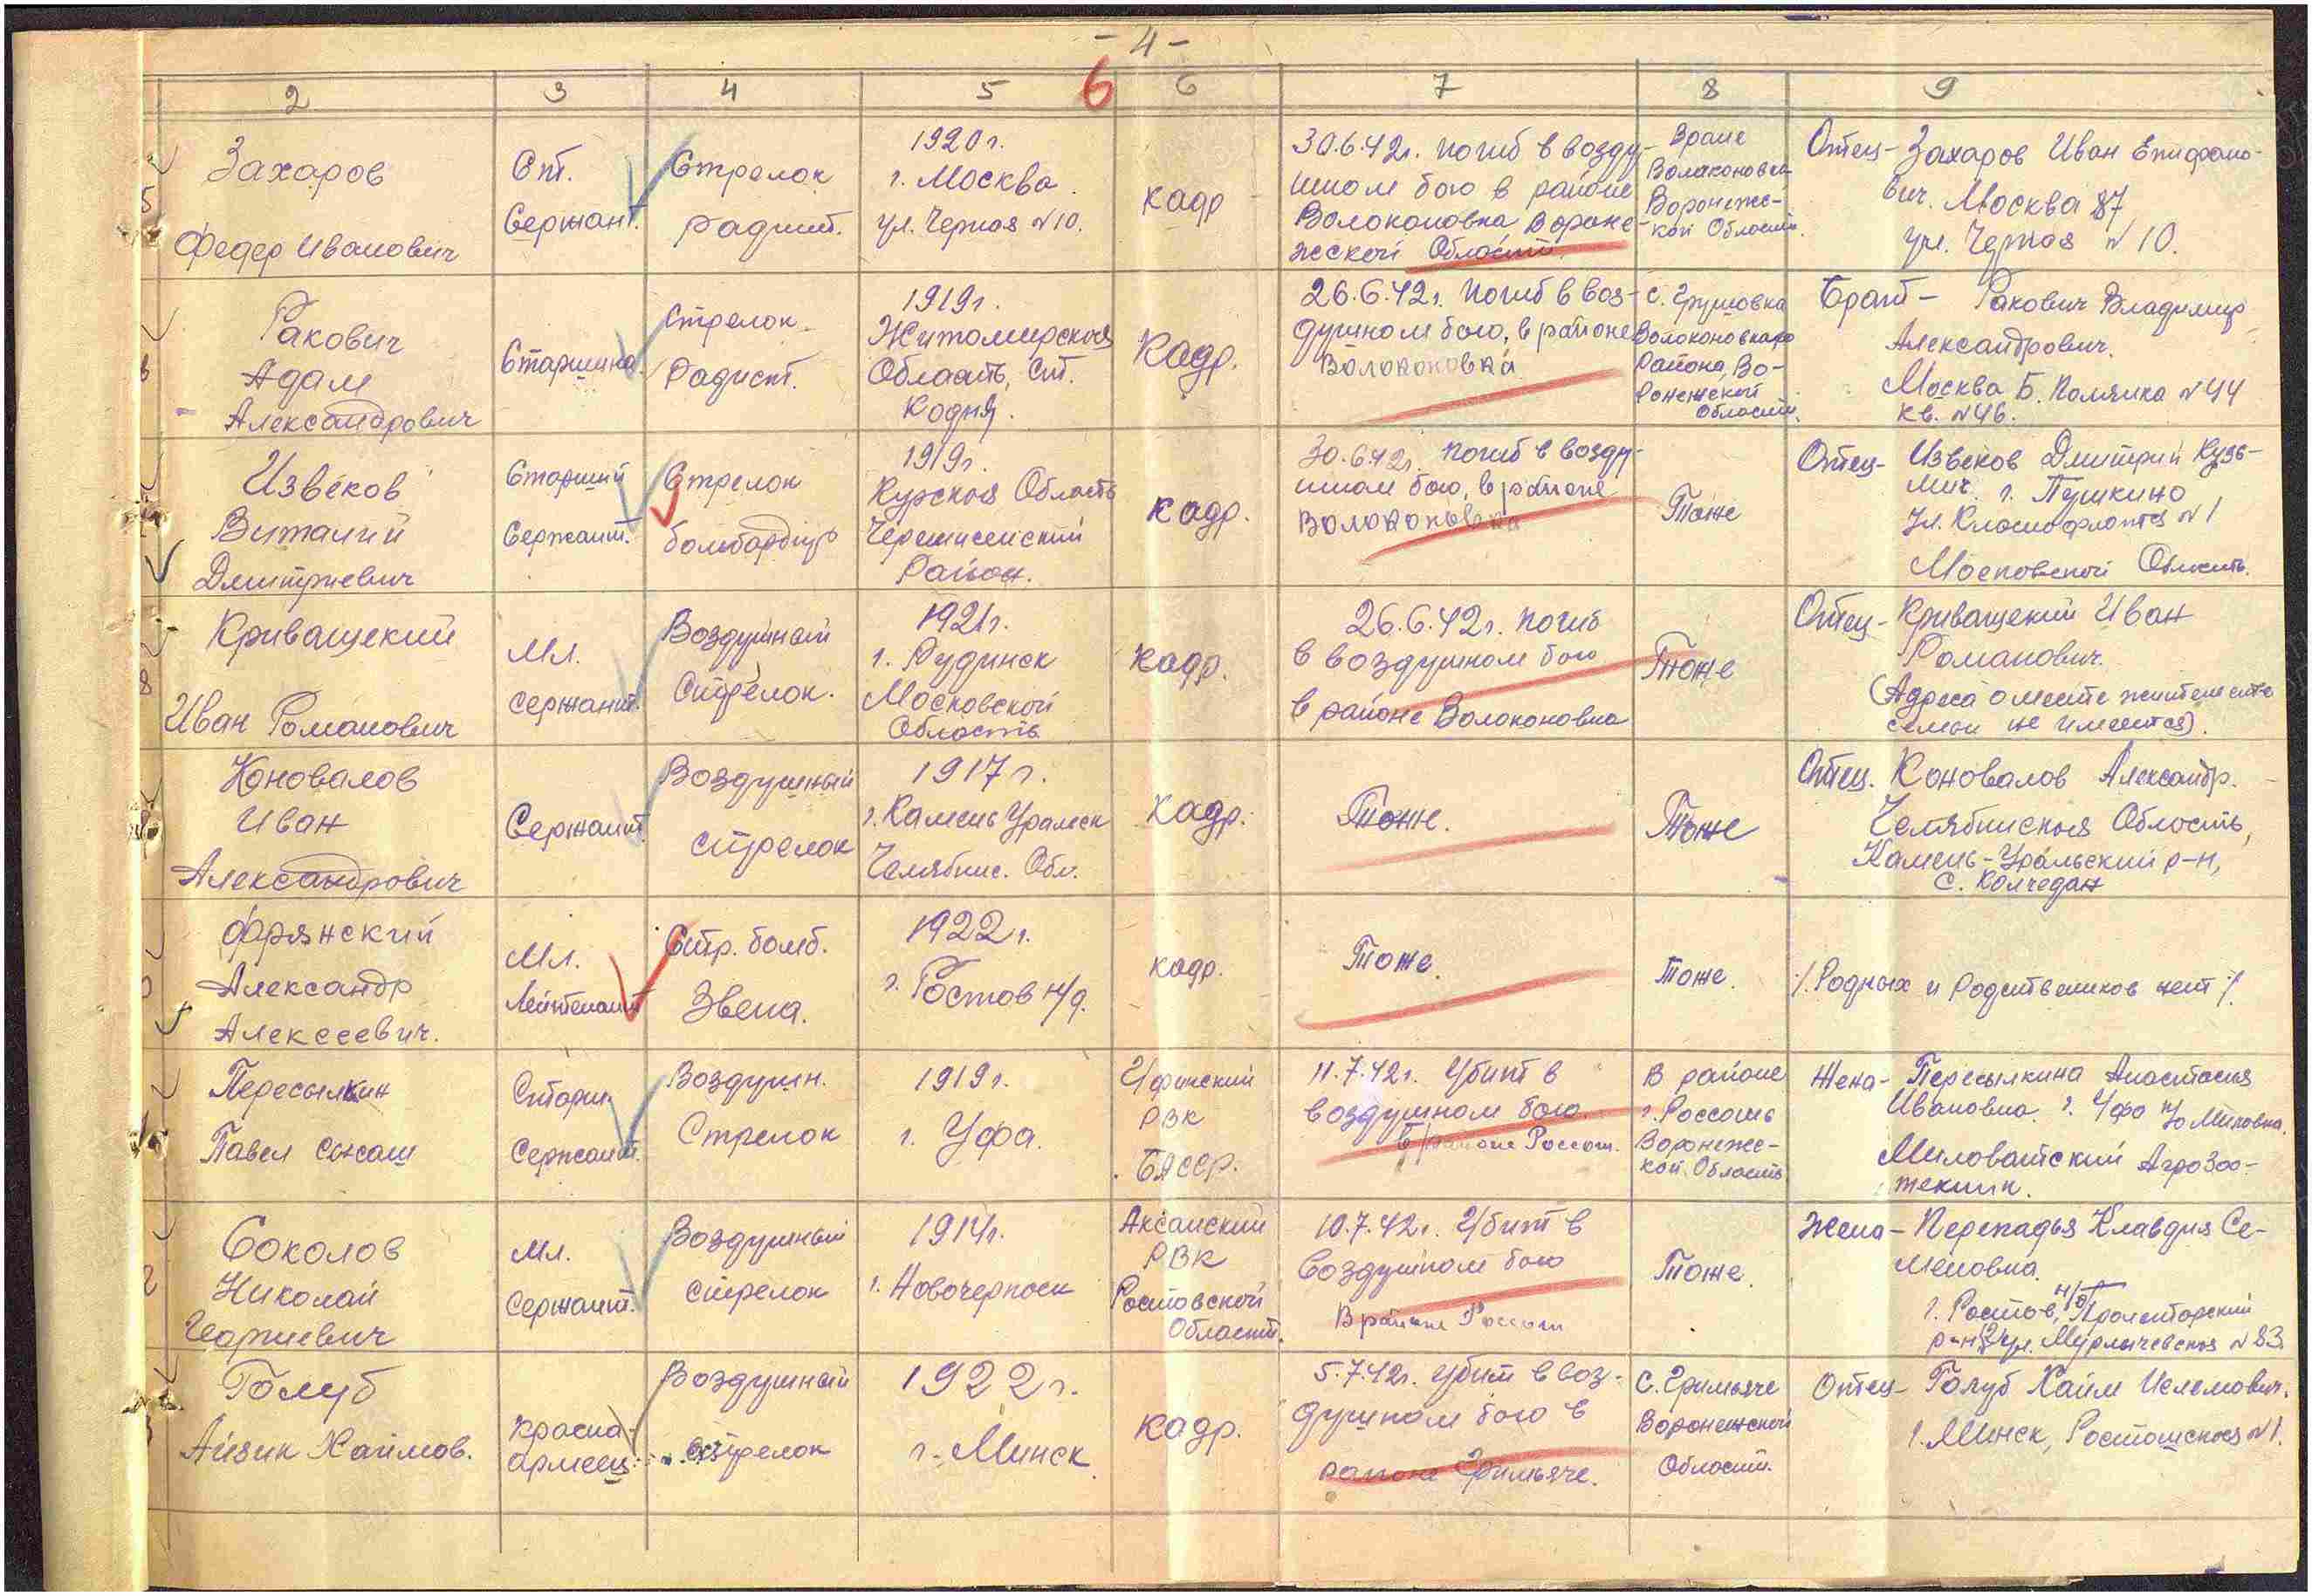 - 4 -
6
2 3 4 5 6 7 8 9
Захаров
Федор Иванович
Ст.
Сержант.
Стрелок
радист.
1920 г.
г. Москва.
ул. Черная №10.
кадр
30.6.42г. погиб в возду-
шном бою в районе
Волоконовка Вороне-
жской Области.
Волоконовка
Воронежс-
кой Области.
Отец - Захаров Иван Епифано-
вич. Москва 87
ул. Черная №10.
Ракович
Адам
Александрович
Старшина
Стрелок
Радист.
1919г.
Житомирская
Область, Ст.
Кодня.
Кадр.
26.6.42г. Погиб в воз-
душном бою, в районе
Волоконовка
с. Грушовка
Волоконовкаго
Района, Во-
ронежской
Области.
Брат - Ракович Владимир
Александрович.
Москва Б. Полянка №44
кв. №46.
Извеков
Виталий
Дмитриевич
Старший
Сержант.
Стрелок
бомбардир
1919г.
Курская Область
Черемисенский
Район.
кадр.
30.6.42г. Погиб в возду-
шном бою, в районе
Волоконовка
Тоже
Отец - Извеков Дмитрий Кузь-
мич. г. Пушкино
Ул. Краснофлотся №1
Московской Область.
Криващекий
Иван Романович
Мл.
сержант.
Воздушный
Стрелок.
1921г.
г. Рудинск
Московской
Область
кадр.
26.6.42г. погиб
в воздушном бою
в районе Волоконовка
Тоже
Отец - Криващекий Иван
Романович.
(Адреса о месте жительства
семьи не имеется).
Коновалов
Иван
Александрович
Сержант
Воздушный
стрелок
1917 г.
г. Камень Уральск
Челябинс. Обл.
кадр.
Тоже.
Тоже
Отец. Коновалов Александр.
Челябинская Область,
Камень-Уральский р-н,
с. Колчедан
Фрянский
Александр
Алексеевич.
Мл.
Лейтенант
Стр. бомб.
Звена.
1922г.
г. Ростов н/д.
кадр.
Тоже.
Тоже.
/. Родных и Родственников нет /.
Пересылкин
Павел
Старш.
Сержант.
Воздушн.
Стрелок
1919г.
г. Уфа.
Уфимский
РВК
БАССР.
11.7.42г. Убит в
воздушном бою
в районе Россош.
В районе
г. Россошь
Воронежс-
кой Область
Жена - Пересылкина Анастасия
Ивановна г. Уфа п/о Миловка.
Миловатский Агрозоо-
техник.
Соколов
Николай
Георгиевич
Мл.
Сержант.
Воздушный
стрелок
1914г.
г. Новочеркаск
Аксайский
РВК
Ростовской
Области.
10.7.42г. Убит в
Воздушном бою
В районе Россош
Тоже.
Жена - Перепадья Клавдия Се-
меновна.
г. Ростов, н/д Пролетарский
р-н ул. Мурлычевская №83
Голуб
Айзик Хаимов.
Красно-
армеец
Воздушный
стрелок
1922г.
г. Минск
кадр.
5.7.42г. убит в воз-
душном бою в
районе Гримьяче.
С. Гримьяче
Воронежской
Област.
Отец - Голуб Хаим
г. Минск, №1.